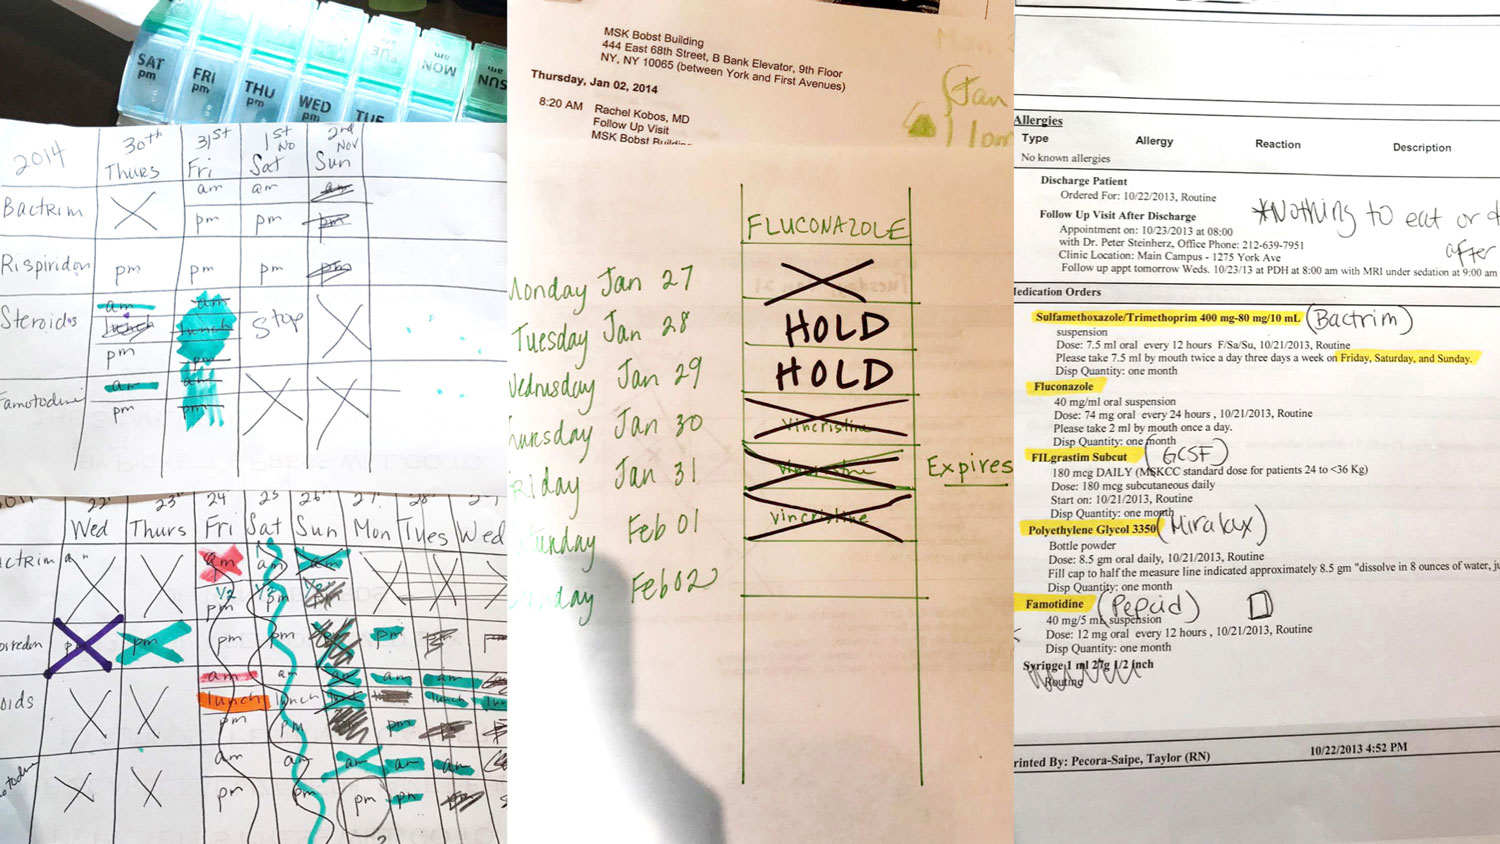 SAT pm
FRI pm
THU pm
WED pm
TUE
TUE am
MON am
SUN am
2014
30th Thurs
31st Fri
1st No Sat
2nd Nov Sun
Bactrim
am am am
pm pm pm
Rispiridon pm pm pm pm
Steroids
am am
lunch lunch Stop
pm pm
Famotodine
am am
pm pm
22 23 24 25 26 27 28 29
Wed Thurs Fri Sat Sun Mon Tues Wed
actrim am am am
1/2 pm
pm pm pm pm pm pm
oids
am am am am am
lunch lunch lunch lun
pm pm pm
am am am am am
pm pm pm pm
MSK Bobst Building
444 East 68th Street, B Bank Elevator, 9th Floor
NY, NY 10065 (between York and First Avenues)
Thursday, Jan 02, 2014
8:20 AM Rachel Kobos, MD
Follow Up Visit
MSK Bobst Building
Jan
FLUCONAZOLE
Monday Jan 27
Tuesday Jan 28 HOLD
Wednusday Jan 29 HOLD
hursday Jan 30 Vincristine
riday Jan 31 Vincristine Expires
unday Feb 01 Vincristine
nday Feb 02
Allergies
Type Allergy Reaction Description
No known allergies
Discharge Patient
Ordered For: 10/22/2013, Routine
*Nothing to eat or d
after
Follow Up Visit After Discharge
Appointment on: 10/23/2013 at 08:00
with Dr. Peter Steinherz, Office Phone: 212-639-7951
Clinic Location: Main Campus - 1275 York Ave
Follow up appt tomorrow Weds. 10/23/13 at PDH at 8:00 am with MRI under sedation at 9:00 am
Medication Orders
Sulfamethoxazole/Trimethoprim 400 mg-80 mg/10 mL (Bactrim)
suspension
Dose: 7.5 ml oral every 12 hours F/Sa/Su, 10/21/2013, Routine
Please take 7.5 ml by mouth twice a day three days a week on Friday, Saturday, and Sunday.
Disp Quantity: one month
Fluconazole
40 mg/ml oral suspension
Dose: 74 mg oral every 24 hours , 10/21/2013, Routine
Please take 2 ml by mouth once a day.
Disp Quantity: one month
FILgrastim Subcut (GCSF)
180 mcg DAILY (MSKCC standard dose for patients 24 to <36 Kg)
Dose: 180 mcg subcutaneous daily
Start on: 10/21/2013, Routine
Disp Quantity: one month
Polyethylene Glycol 3350 (Miralax)
Bottle powder
Dose: 8.5 gm oral daily, 10/21/2013, Routine
Fill cap to half the measure line indicated approximately 8.5 gm "dissolve in 8 ounces of water, ju
Disp Quantity: one month
Famotidine (Pepcid)
40 mg/5 mL suspension
Dose: 12 mg oral every 12 hours , 10/21/2013, Routine
Disp Quantity: one month
Syringe 1 ml 27g 1/2 inch
Routine
10/22/2013 4:52 PM
rinted By: Pecora-Saipe, Taylor (RN)